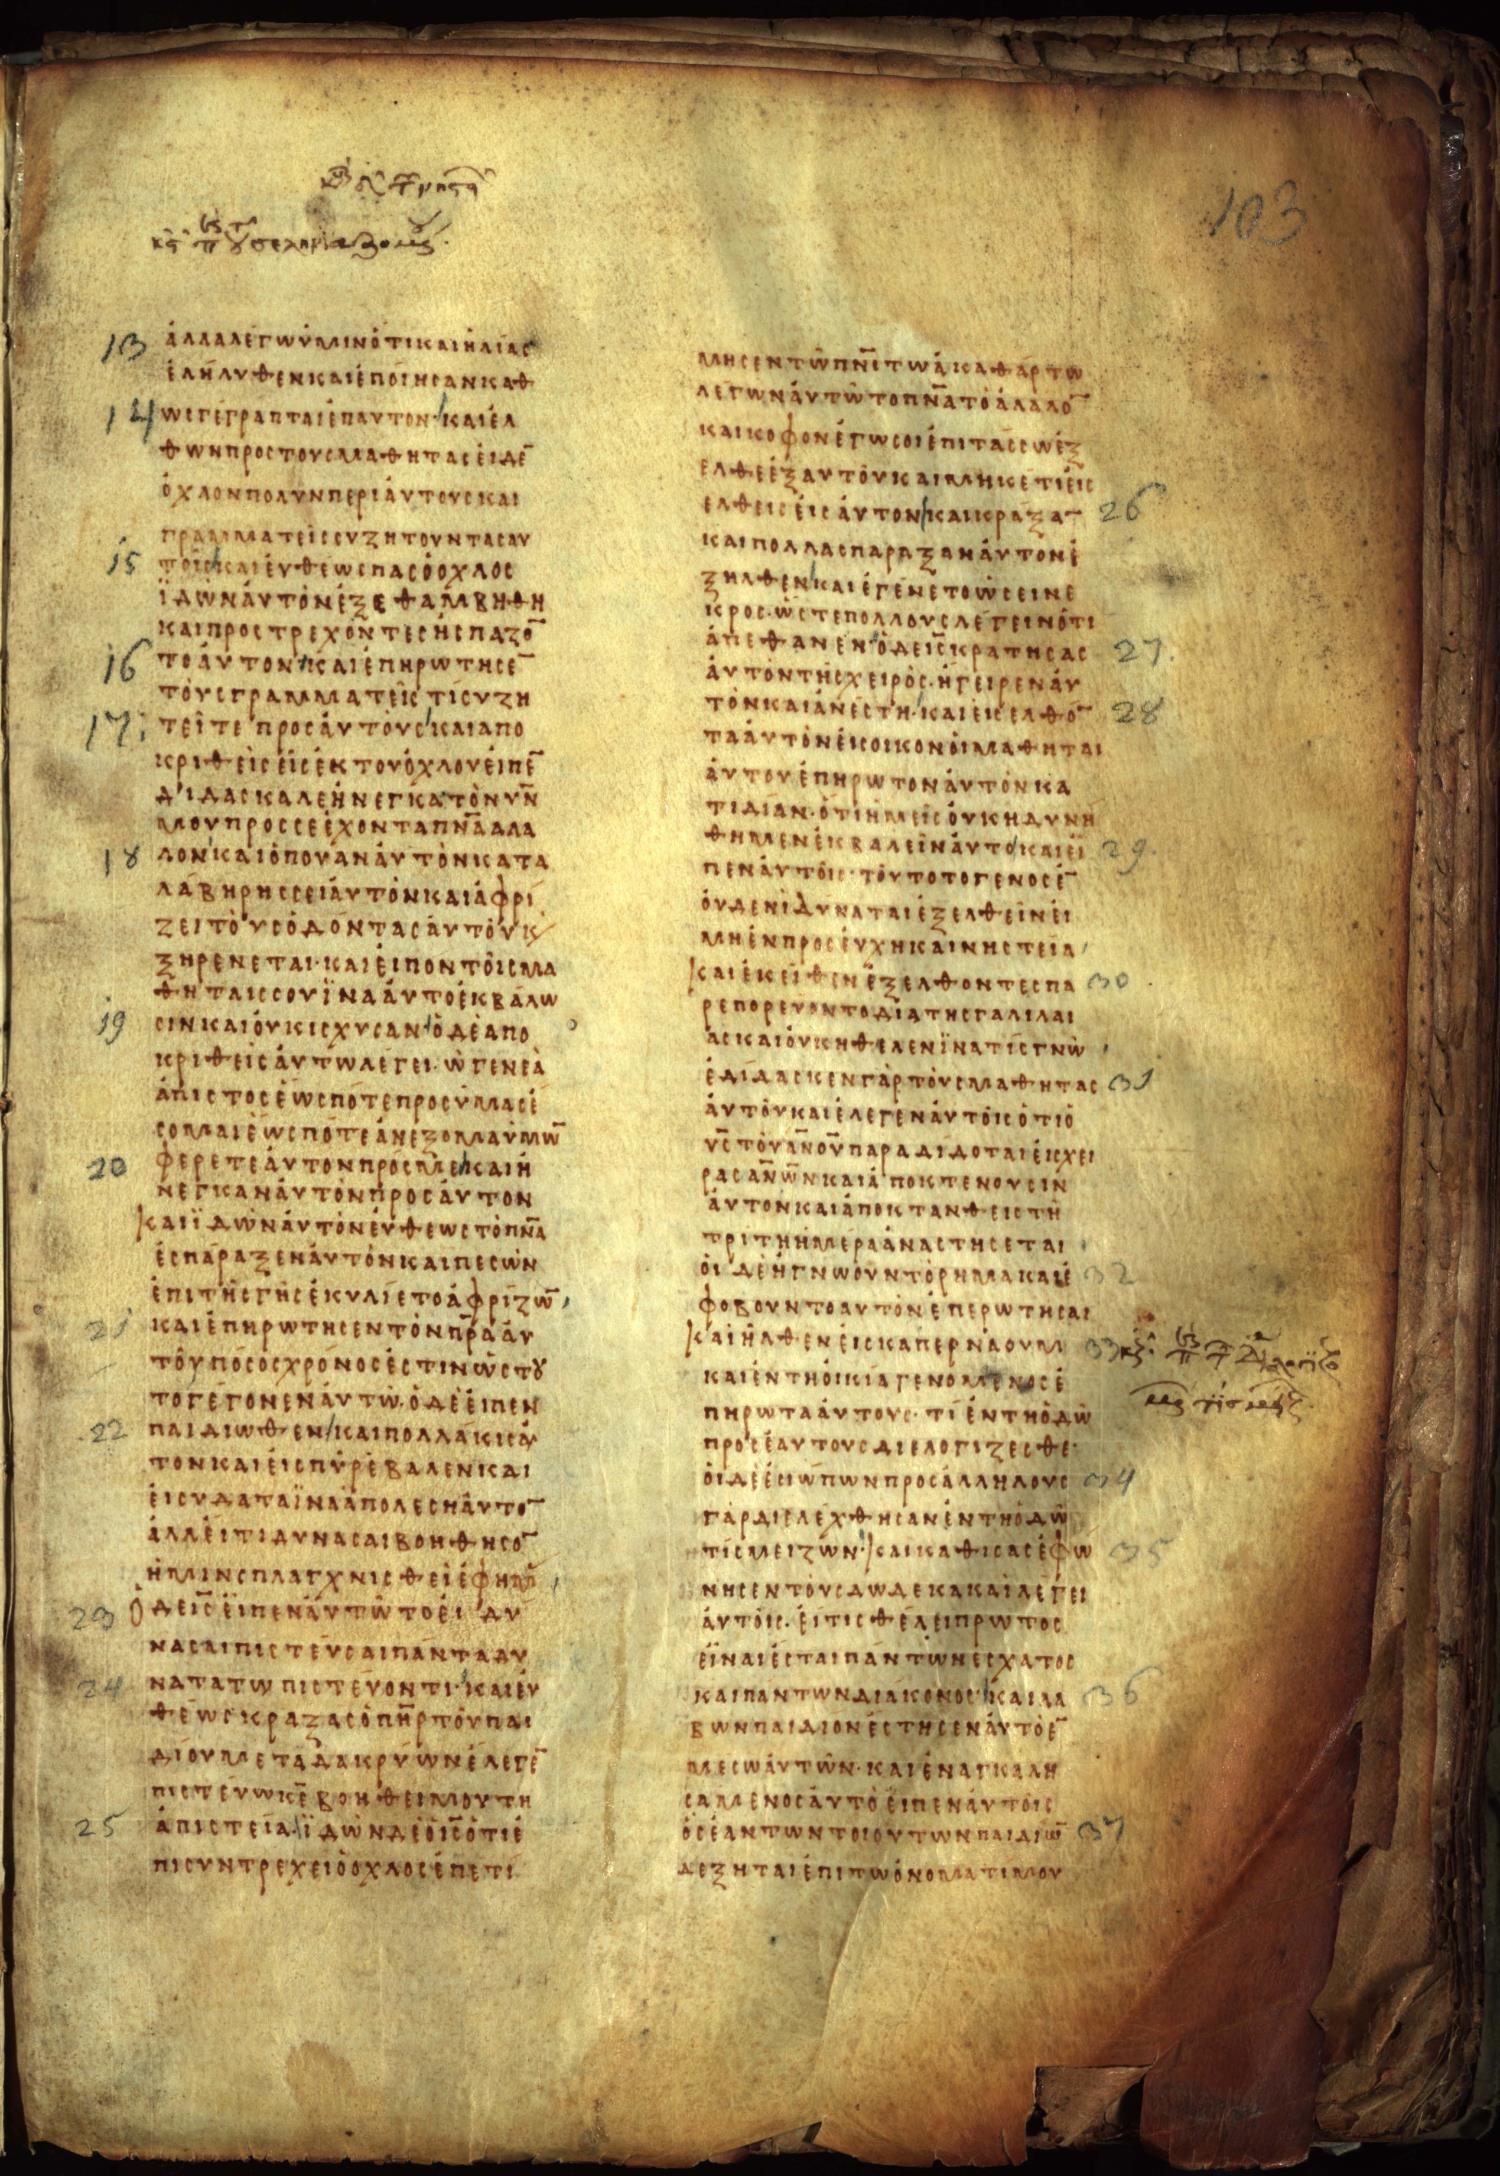 103
13 ἀλλαλέγωὑμινὅτικαιἠλίας
ἐλήλυθενκαιἐποίησανκαθ
14 ωσγέγραπταιἐπαυτον·καιἐλ
θωνπροστουσμαθητασἐιδε̅
ὄχλονπολυνπεριἀυτουσκαι
γραμματεισσυζητουντασαυ
15 τοῖσκαιἐυθεωσπασὁοχλοσ
ϊδὼνἀυτὸνἐξεθαμβηθη
καιπροστρεχόντεσἠσπαζο̅
16 τοἀυτον·καιἐπηρωτησε̅
τὸυσγραμματεῖστίσυζη
17 τεῖτεπροσἀυτὸυσκαιαπο
κριθεὶσεἱσἐκτουὄχλουἐιπε̅
διδασκαλεἤνεγκατὸνυν̅
μουπροσσεἔχονταπν̅αἀλα
18 λον·καιὅπουἀνἀυτὸνκατα
λάβηρησσειἀυτὸνκαιἀφρί
ζειτὸυσὀδόντασἀυτὸυκ
ξηρενεται·καιἐιπὸντοῖσμα
θηταισσουϊναἀυτοἐκβάλω
19 σινκαιὀυκισχυσαν·ὁδὲαπο
κριθεὶσἀυτωλεγει·ὦγενεὰ
ἄπιστοσἕωσπότεπροσὑμασἐ
σομαιἕωσπότεἀνεξομαιὑμω̅
20 φέρετεἀυτονπρόσμεκαιἤ
νεγκανἀυτὸνπροσἀυτον
καιϊδὼνἀυτὸνἐυθεωστὸπν̅α
ἐσπάραξενἀυτὸνκαιπεσὼν
ἐπιτῆσγῆσἐκυλίετοἀφρίζω̅
21 καιἐπηρωτησεντὸνπ̅ραἀυ
τοῦπόσοσχρόνοσἐστὶνὡστου
τογέγονενἀυτῶ·ὁδὲἐιπεν
22 παιδιωθενκαιπολλάκισἀυ
τονκαιἐισπῦρἔβαλενκαι
ἐισυδαταϊναἀπολεσηἀυτο̅
ἀλλἐιτιδυνασαιβοηθησο̅
ἡμινσπλαγχνισθεὶσἐφημᾶσ
23 ὁδεισ̅ἐιπενἀυτῶτοἐιδυ
νασαιπιστεῦσαιπάνταδυ
24 νατατωπιστέυοντι·καιἐυ
θέωσκραξασὁπη̅ρτοῦπαι
δίουμεταδακρύωνἐλεγε̅
πιστέυωκ̅εβοηθειμουτη
25 ἀπιστεία·ϊδὼνδεὁι̅σὅτιἐ
πισυντρεχειὁοχλοσἐπετί
μησεντῶπν̅ιτωἀκαθάρτω
λέγωνἀυτῶτοπν̅ατὸἄλαλο̅
καικοφονἐγωσοιἐπιτασσωἐξ
ελθεἐξαυτοῦκαιμηκέτιἐισ
26 ελθεισἐισἀυτονκαικραξα̅
καιπολλασπαραξανἀυτονἐ
ξηλθενκαιἐγένετοὡσεινε
κροσ·ὡστεπολλουσλέγεινὅτι
27 ἀπέθανεν·ὁδεισ̅κρατησασ
ἀυτοντῆσχειρὸσ·ἤγειρενἀυ
28 τὸνκαιἀνέστη·καιἐισελθο̅
ταἀυτὸνἐισοικονὁιμαθηται
ἀυτουἐπηρωτονἀυτὸνκα
τιδίαν·ὅτιἡμεῖσὀυκηδυνη
29 θημενἐκβαλεῖνἀυτοκαιἐῖ
πενἀυτοῖσ·τουτοτογενοσἐ̅
ὀυδενὶδύναταιἐξελθεῖνἐι
μηἐνπροσἐυχηκαινηστεία
30 καιἐκεῖθενἐξελθοντεσπα
ρεπορευοντοδιατησγαλιλαι
ασκαιὀυκηθελενϊνατίσγνῶ
31 ἐδίδασκενγὰρτὸυσμαθητασ
ἀυτοῦκαιἐλεγενἀυτοῖσὅτιὁ
υσ̅τοῦαν̅ουπαραδιδοταιἐισχει
ρασαν̅ωνκαιἀποκτενουσιν
ἀυτονκαιἀποκτανθειστῆ
τριτηἡμεραἀναστησεται
32 ὁιδὲἠγνωουντὸρημακαιἐ
φοβουντοαυτονἐπερωτησαι
33 καιἦλθενἐισκαπερναουμ
καιἐντηὀικιαγενομενοσἐ
πηρωταἀυτουσ·τίἐντηὁδῶ
προσἑαυτουσδιελογιζεσθε·
34 ὁιδὲἐσιώπωνπροσἀλλήλουσ
γὰρδιελέχθησανἐντηὁδῶ
35 τίσμειζων·καικαθισασἐφω
νησεντὸυσδωδεκακαιλέγει
ἀυτοῖσ·ἐιτισθέλειπρωτοσ
εἶναιἐσταιπάντωνεσχατοσ
36 καιπαντωνδιακονοσ·καιλα
βωνπαιδιονἐστησενἀυτὸἐ̅
μεσωἀυτῶν·καιἐναγκαλη
σαμενοσἀυτὸἐιπενἀυτοῖσ
37 ὁσἐαντωντοιουτωνπαιδιω̅
δεξηταιἐπιτωὀνοματιμου